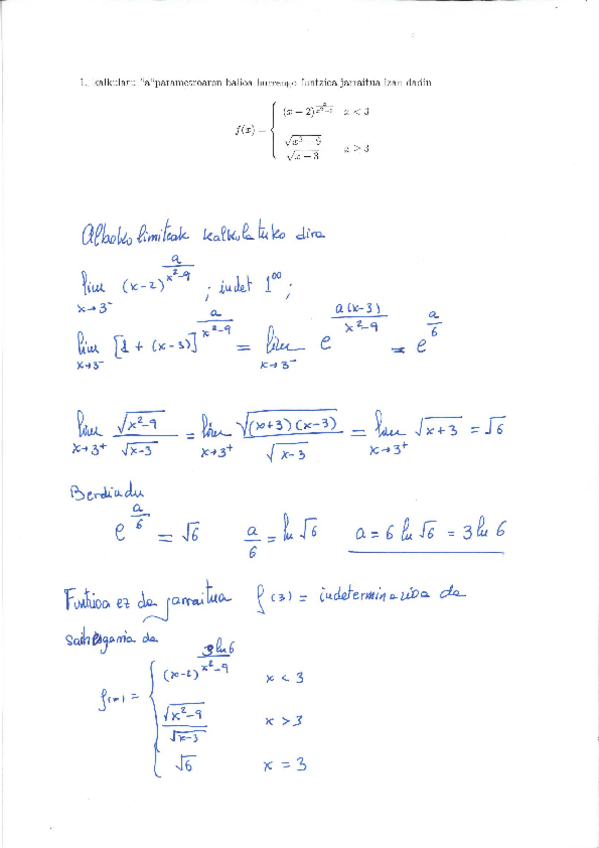 1. kalkulatu "a"parametroaren balioa hurrengo funtzioa jarraitua izan dadin
f(x) = { (x − 2)^{a/(x²−9)} x < 3
√(x² − 9) / √(x − 3) x > 3
Alboko limiteak kalkulatuko dira
lim_{x→3⁻} (x-2)^{a/(x²-9)} ; indet 1^∞ ;
lim_{x→3⁻} [1 + (x-3)]^{a/(x²-9)} = lim_{x→3⁻} e^{a(x-3)/(x²-9)} = e^{a/6}
lim_{x→3⁺} √(x²-9) / √(x-3) = lim_{x→3⁺} √((x+3)(x-3)) / √(x-3) = lim_{x→3⁺} √(x+3) = √6
Berdindu
e^{a/6} = √6 a/6 = ln √6 a = 6 ln √6 = 3 ln 6
Funtzioa ez da jarraitua f(3) = indeterminazioa da
da
f(x) = { (x-2)^{3 ln 6/(x²-9)} x < 3
√(x²-9) / √(x-3) x > 3
√6 x = 3